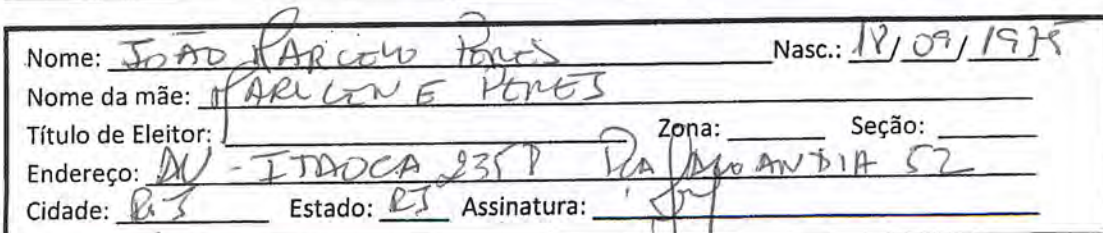 Nome: JOÃO MARCELO PERES Nasc.: 18/09/1975
Nome da mãe: MARILENE PERES
Título de Eleitor: Zona: Seção:
Endereço: AV - ITAOCA 52
Cidade: RJ Estado: RJ Assinatura: